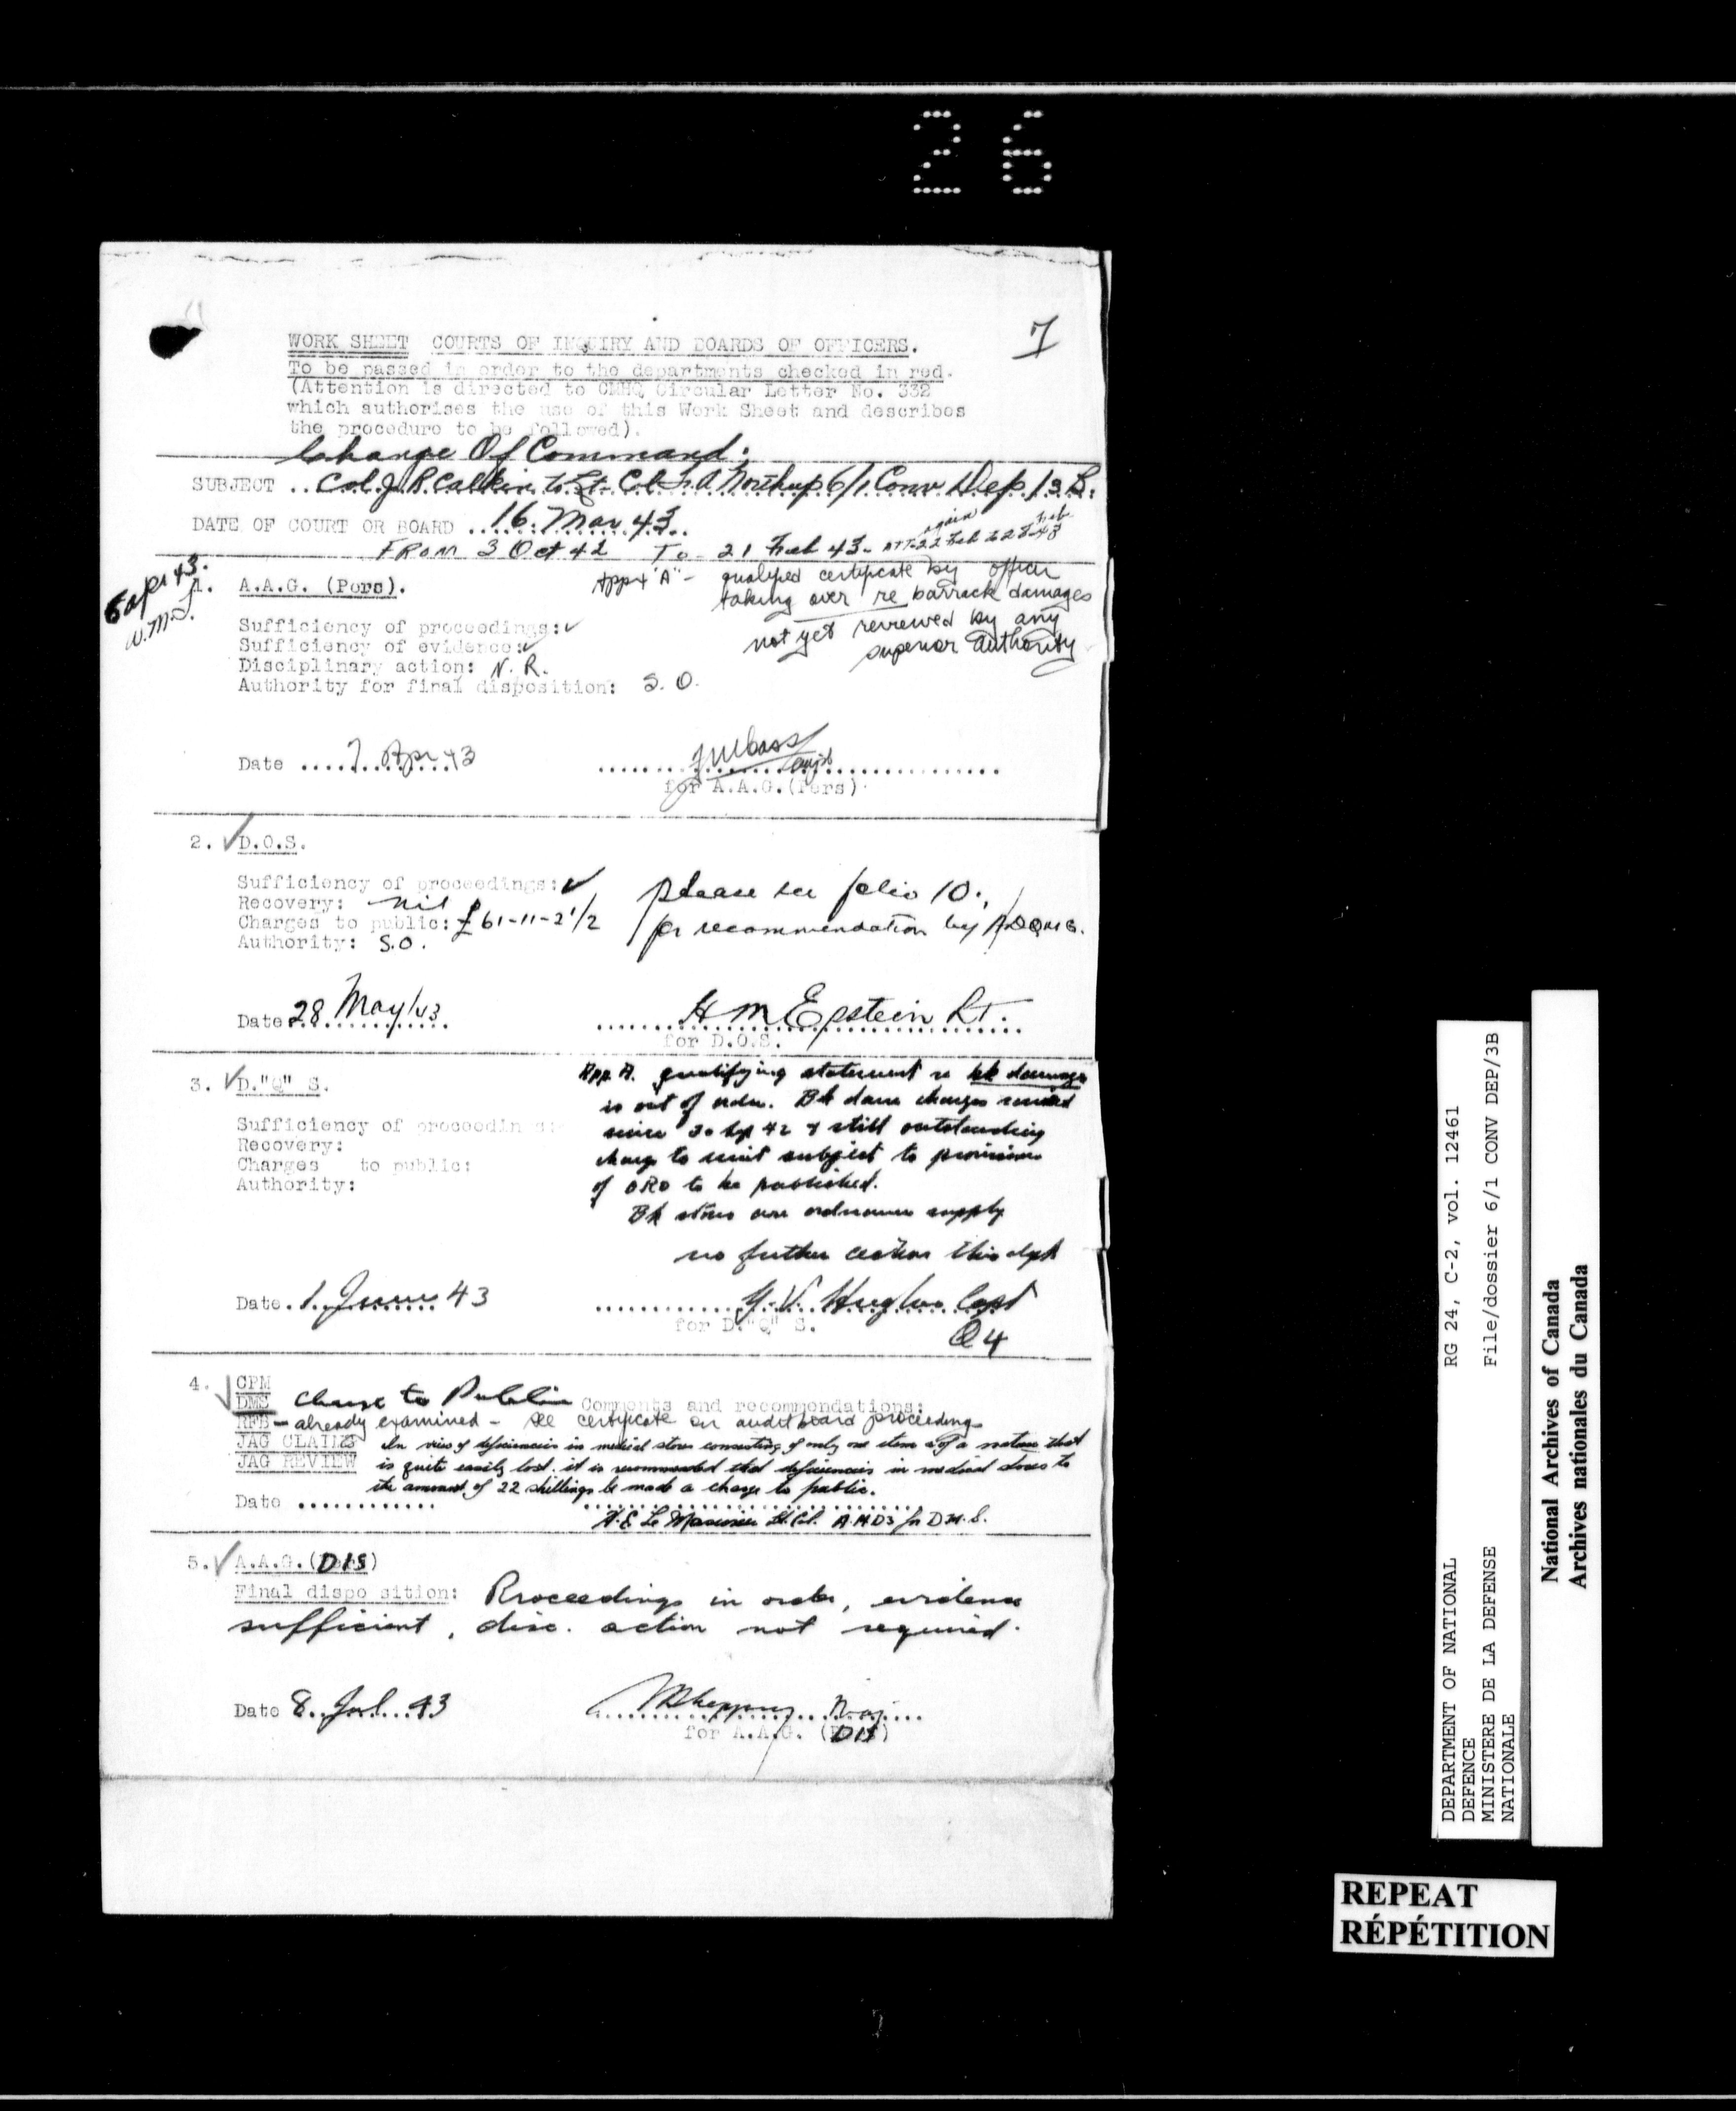 26
7
WORK SHEET COURTS OF INQUIRY AND BOARDS OF OFFICERS.
To be passed in order to the departments checked in red.
(Attention is directed to CMHQ Circular Letter No. 332
which authorises the use of this Work Sheet and describes
the procedure to be followed).
Change Of Command:
SUBJECT .. Col. J. R. Calkin to Lt. Col. F. A Northup 6/1 Conv Dep / 3 B.
DATE OF COURT OR BOARD ..16. Mar 43..
FROM 3 Oct 42 To 21 Feb 43.
5 Apr 43.
1. A.A.G. (Pers).
App "A" - qualified certificate by officer
taking over re barrack damages
not yet reviewed by any
superior authority
Sufficiency of proceedings: ✓
Sufficiency of evidence: ✓
Disciplinary action: N. R.
Authority for final disposition: S. O.
Date ....7. Apr 43
for A.A.G.(Pers)
2. ✓ D.O.S.
Sufficiency of proceedings: ✓
Recovery: nil
Charges to public: £ 61-11-2 1/2
Authority: S.O.
please see folio 10.,
for recommendation by ADQMG.
Date 28 May/43
H M Epstein Lt.
for D.O.S.
3. ✓ D."Q" S.
App A. qualifying statement re bk damage
is out of order. Bk dam charges
since 20 Sep 42 & still outstanding
charge to unit subject to provisions
of ORO to be published.
Bk stores are ordnance supply
no further action this dept
Sufficiency of proceedings:
Recovery:
Charges to public:
Authority:
Date. 1. June 43
G. V. Hughes Capt
for D."Q" S.
Q4
4. ✓ CPM
DMS Charge to Public Comments and recommendations:
RFB - already examined - see certificate on audit board proceedings
JAG CLAIMS In view of deficiencies in medical stores consisting of only one item & of a nature that
JAG REVIEW is quite easily lost, it is recommended that deficiencies in medical stores to
the amount of 22 shillings be made a charge to public.
Date ............
H. E. Le Masurier Lt. Col. A.M.D3 for D.M.S.
5. ✓ A.A.G.(DIS)
Final disposition: Proceedings in order, evidence
sufficient, disc. action not required.
Date 8. Jul. 43
Maj.
for A.A.G. (DIS)
DEPARTMENT OF NATIONAL
DEFENCE
MINISTERE DE LA DEFENSE
NATIONALE
RG 24, C-2, vol. 12461
File/dossier 6/1 CONV DEP/3B
National Archives of Canada
Archives nationales du Canada
REPEAT
RÉPÉTITION